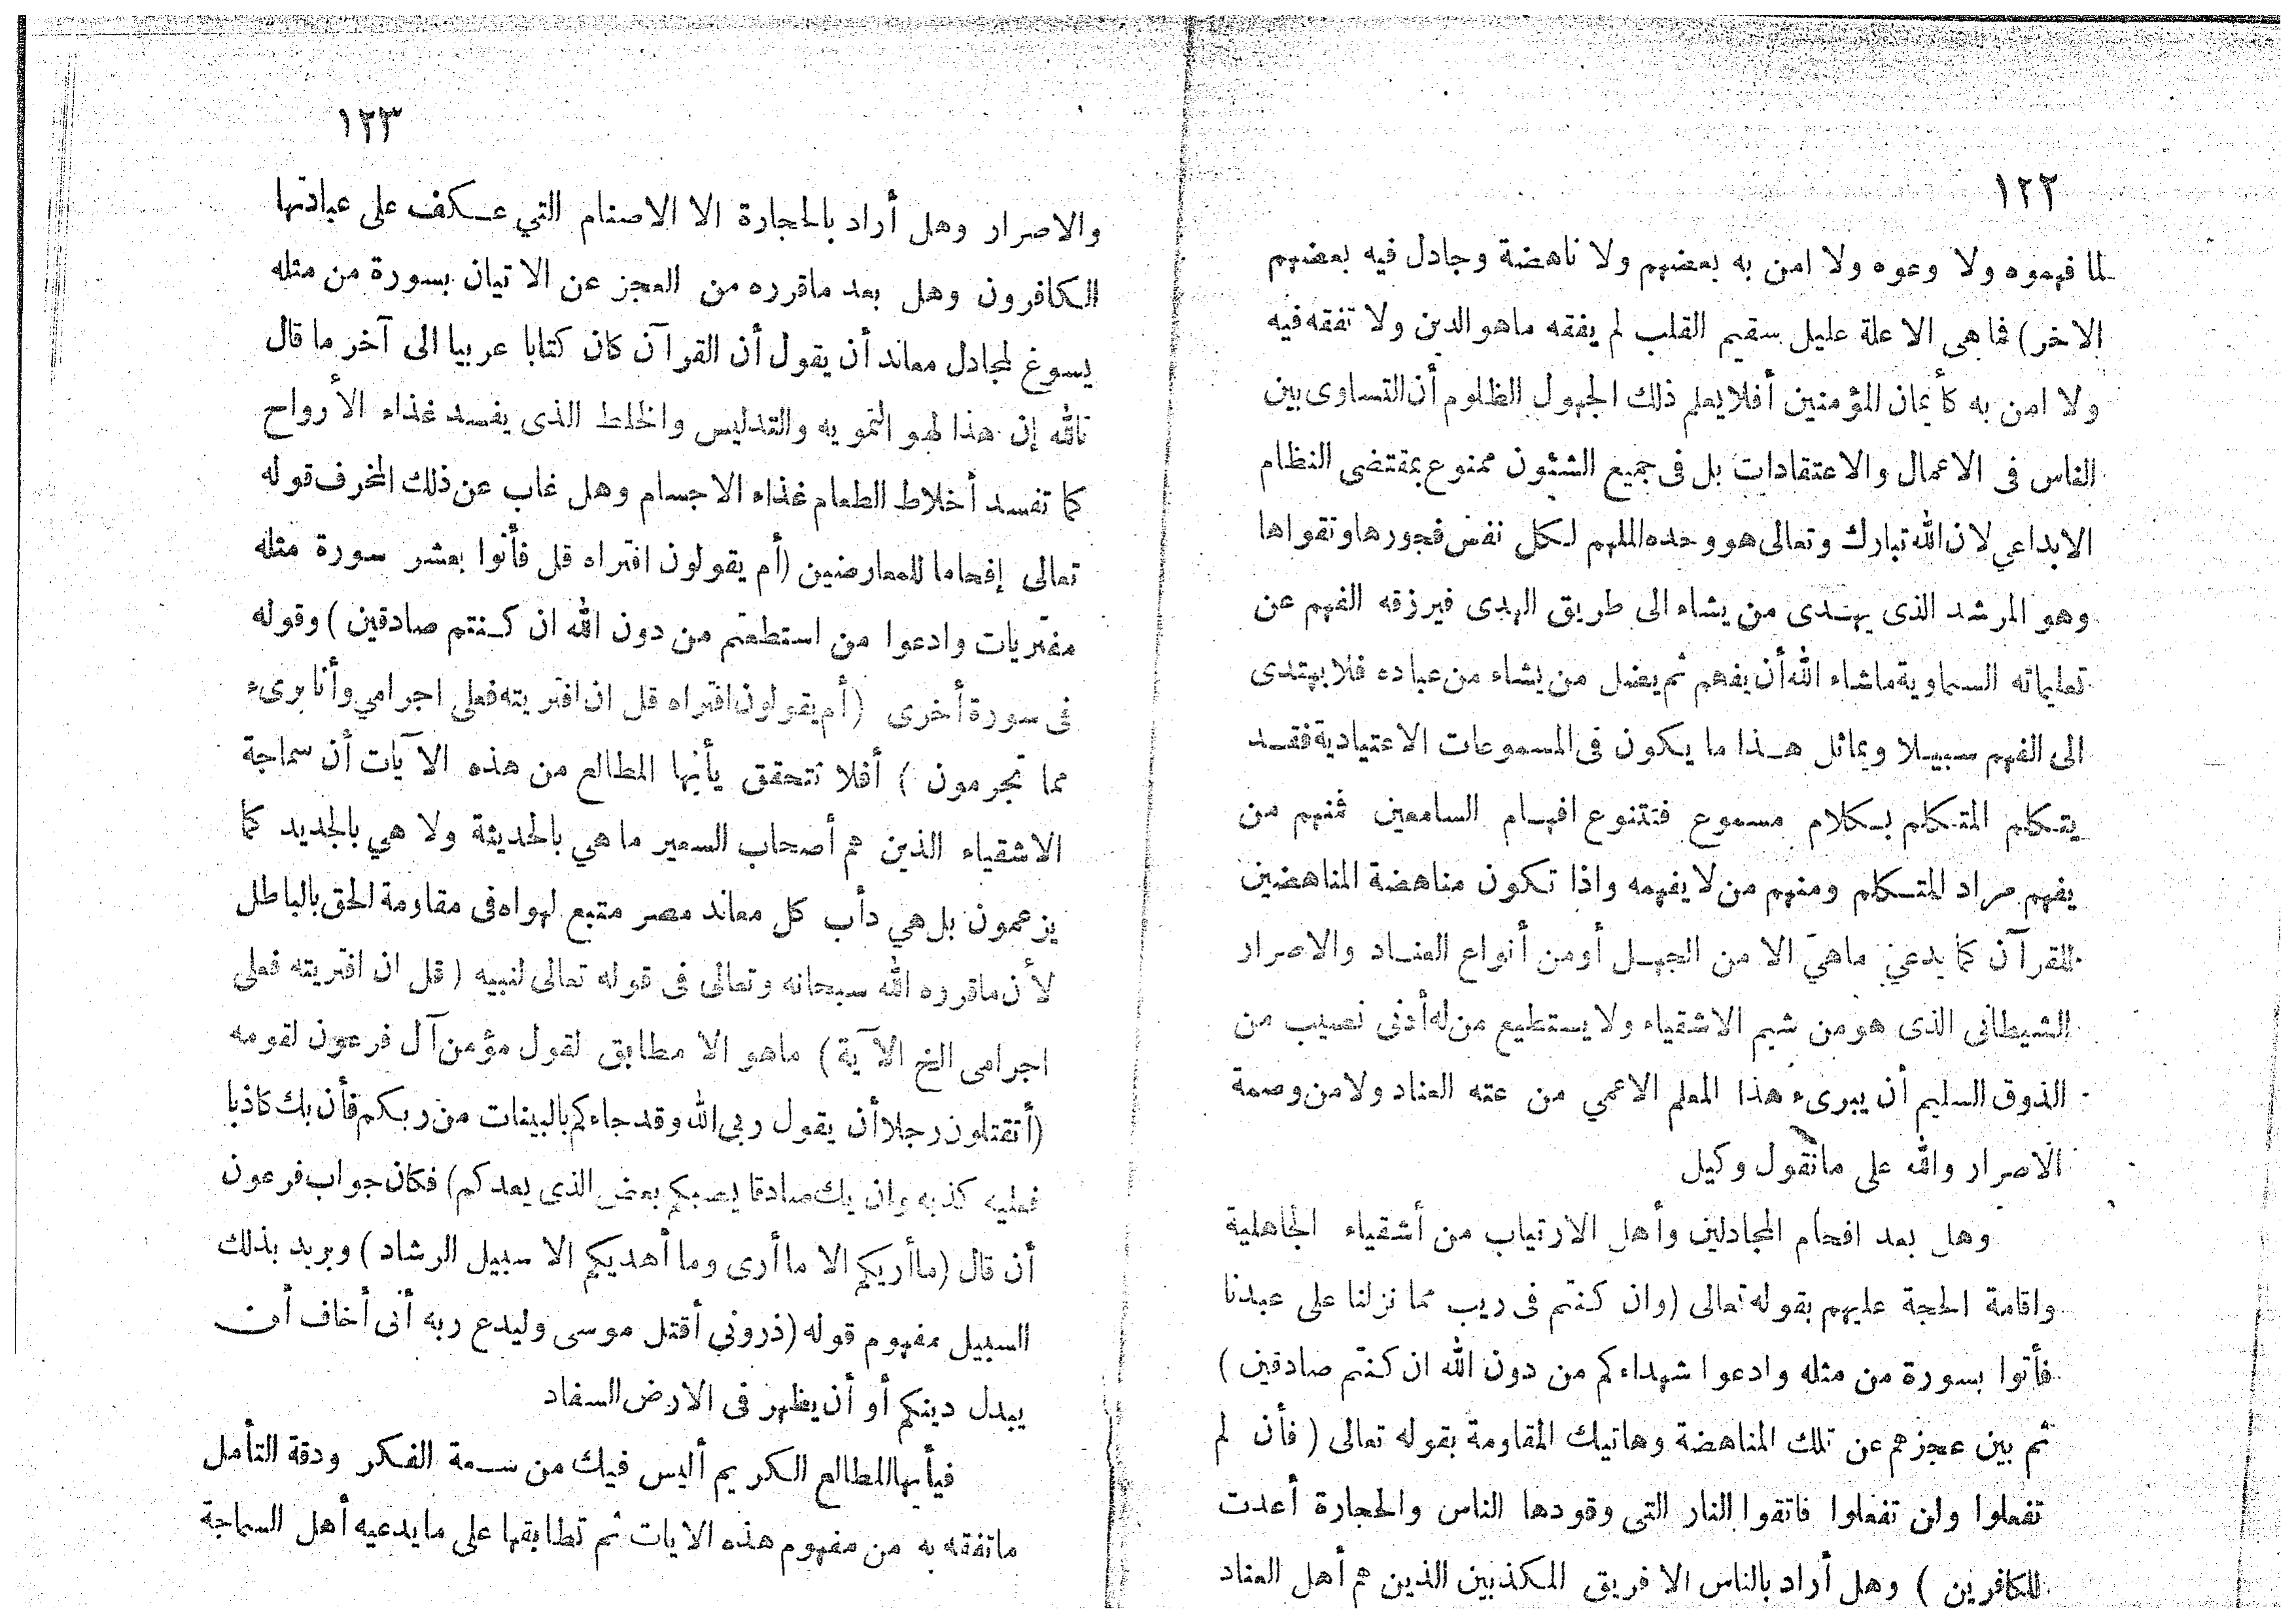 ١٢٢
لما فهموه ولا وعوه ولا امن به بعضهم ولا ناهضة وجادل فيه بعضهم
الاخر) فما هى الا علة عليل سقيم القلب لم يفقه ماهو الدين ولا تفقه فيه
ولا امن به كأيمان المؤمنين أفلا يعلم ذلك الجهول الظلوم أن التساوى بين
الناس فى الاعمال والاعتقادات بل فى جميع الشئون ممنوع بمقتضى النظام
الابداعي لان الله تبارك وتعالى هو وحده الملهم لكل نفس فجورها وتقواها
وهو المرشد الذى يهدى من يشاء الى طريق الهدى فيرزقه الفهم عن
تعليماته السماوية ماشاء الله أن يفهم ثم يضل من يشاء من عباده فلا يهتدى
الى الفهم سبيلا ويماثل هذا ما يكون فى المسموعات الاعتيادية فقد
يتكلم المتكلم بكلام مسموع فتتنوع افهام السامعين فمنهم من
يفهم مراد المتكلم ومنهم من لا يفهمه واذا تكون مناهضة المناهضين
للقرآن كما يدعي ماهي الا من الجهل أو من أنواع العناد والاصرار
الشيطانى الذى هو من شيم الاشقياء ولا يستطيع من له أدنى نصيب من
الذوق السليم أن يبرىء هذا المعلم الاعمي من عته العناد ولا من وصمة
الاصرار والله على مانقول وكيل
وهل بعد افحام المجادلين وأهل الارتياب من أشقياء الجاهلية
واقامة الحجة عليهم بقوله تعالى (وان كنتم فى ريب مما نزلنا على عبدنا
فأتوا بسورة من مثله وادعوا شهداءكم من دون الله ان كنتم صادقين)
ثم بين عجزهم عن تلك المناهضة وهاتيك المقاومة بقوله تعالى (فأن لم
تفعلوا ولن تفعلوا فاتقوا النار التى وقودها الناس والحجارة أعدت
للكافرين) وهل أراد بالناس الا فريق المكذبين الذين هم أهل العناد
١٢٣
والاصرار وهل أراد بالحجارة الا الاصنام التي عكف على عبادتها
الكافرون وهل بعد ماقرره من العجز عن الاتيان بسورة من مثله
يسوغ لمجادل معاند أن يقول أن القرآن كان كتابا عربيا الى آخر ما قال
تالله إن هذا لهو التمويه والتدليس والخلط الذى يفسد غذاء الأرواح
كما تفسد أخلاط الطعام غذاء الاجسام وهل غاب عن ذلك المخرف قوله
تعالى إفحاما للمعارضين (أم يقولون افتراه قل فأتوا بعشر سورة مثله
مفتريات وادعوا من استطعتم من دون الله ان كنتم صادقين) وقوله
فى سورة أخرى (أم يقولون افتراه قل ان افتريته فعلى اجرامي وأنا برىء
مما تجرمون) أفلا تتحقق يأيها المطالع من هذه الآيات أن سماجة
الاشقياء الذين هم أصحاب السعير ما هي بالحديثة ولا هي بالجديد كما
يزعمون بل هي دأب كل معاند مصر متبع لهواه فى مقاومة الحق بالباطل
لأن ماقرره الله سبحانه وتعالى فى قوله تعالى لنبيه (قل ان افتريته فعلى
اجرامى الخ الآية) ماهو الا مطابق لقول مؤمن آل فرعون لقومه
(أتقتلون رجلا أن يقول ربى الله وقد جاءكم بالبينات من ربكم فأن بك كاذبا
فعليه كذبه وان يك صادقا يصبكم بعض الذى يعدكم) فكان جواب فرعون
أن قال (ماأريكم الا ماأرى وما أهديكم الا سبيل الرشاد) ويريد بذلك
السبيل مفهوم قوله (ذروني أقتل موسى وليدع ربه أنى أخاف أن
يبدل دينكم أو أن يظهر فى الارض السفاد
فيأيها المطالع الكريم أليس فيك من سعة الفكر ودقة التأمل
ماتفقه به من مفهوم هذه الايات ثم تطابقها على مايدعيه أهل السماجة